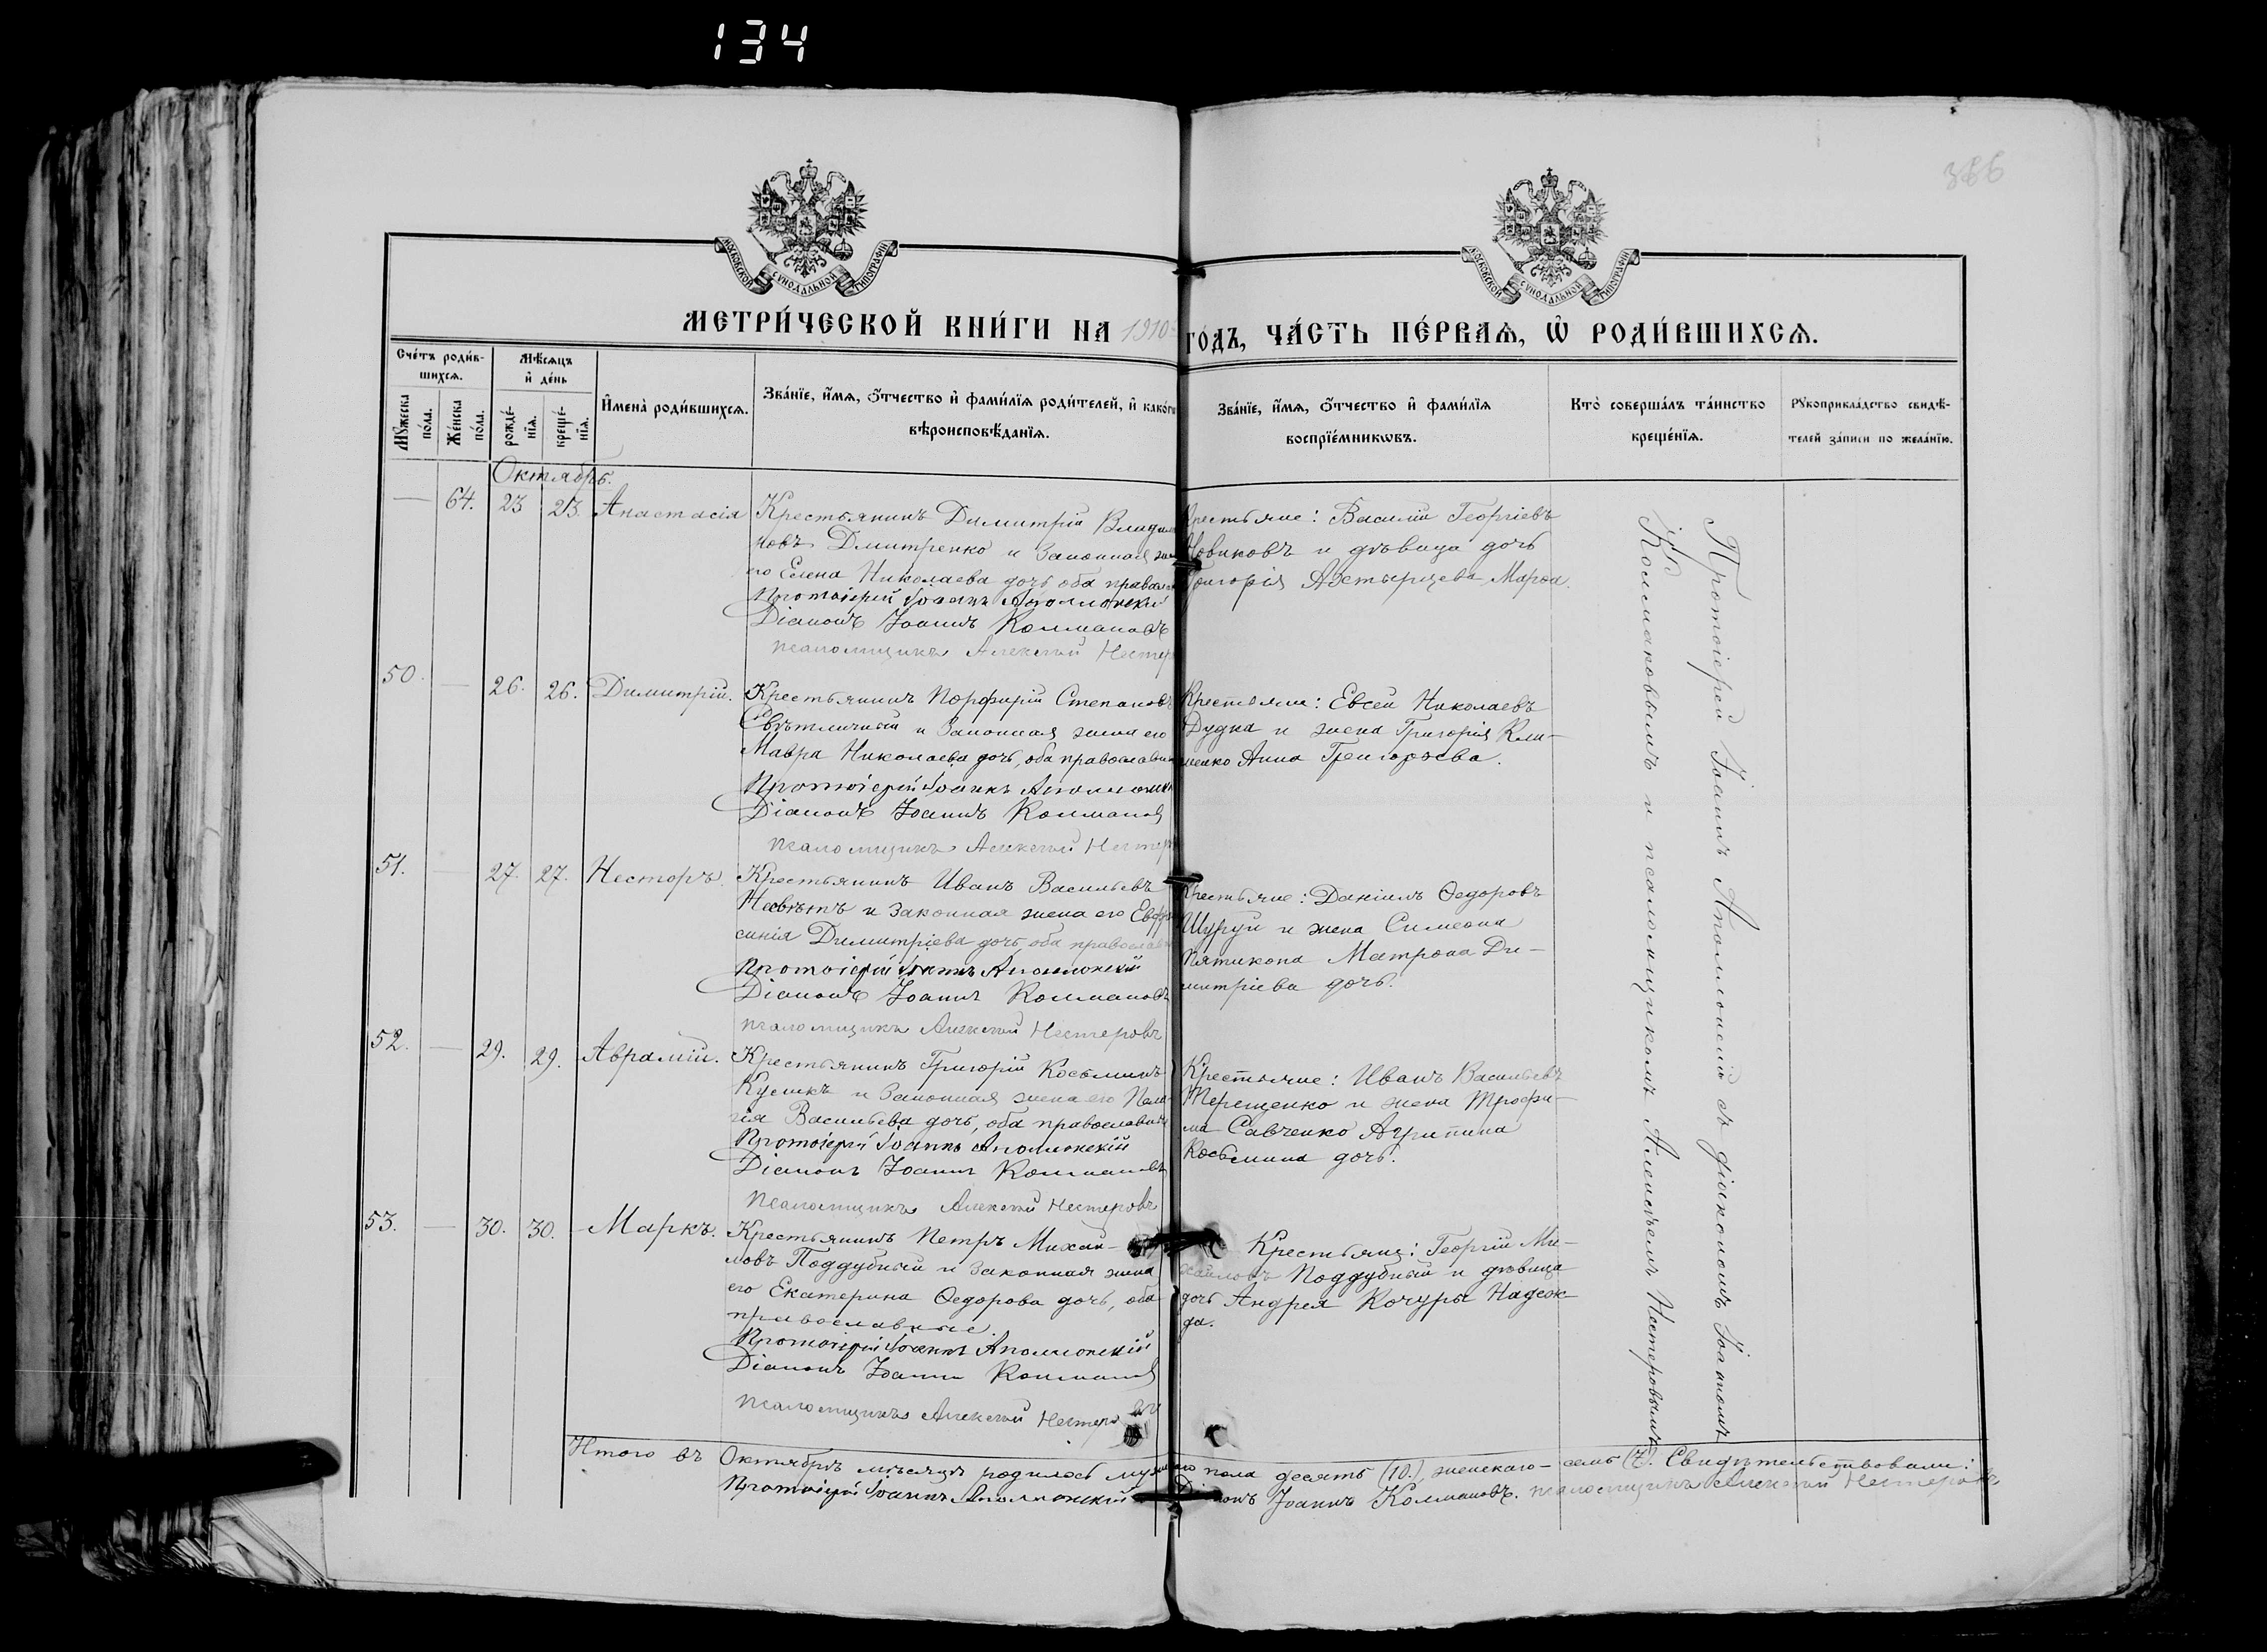 134
386
МОСКОВСКОЙ СѴНОДАЛЬНОЙ ТИПОГРАФІИ
МОСКОВСКОЙ СѴНОДАЛЬНОЙ ТИПОГРАФІИ
МЕТРИ́ЧЕСКОЙ КНИ́ГИ НА 1910 ГО́ДЪ, ЧА́СТЬ ПЕ́РВАѦ, Ѡ҆ РОДИ́ВШИХСѦ.
Сче́тъ роди́в-
шихсѧ.
Мꙋ́жеска по́ла.
Же́нска по́ла.
Мѣ́сѧцъ
и҆ де́нь
рожде́-
нїѧ.
креще́-
нїѧ.
И҆мена̀ роди́вшихсѧ.
Зва́нїе, и҆́мѧ, ѻ҆́тчество и҆ фами́лїѧ роди́телей, и҆ како́гѡ
вѣроисповѣ́данїѧ.
Зва́нїе, и҆́мѧ, ѻ҆́тчество и҆ фами́лїѧ
воспрїе́мникѡвъ.
Кто̀ соверша́лъ та́инство
креще́нїѧ.
Рꙋкоприкла́дство свидѣ́-
телей за́писи по жела́нїю.
Октябрь.
— 64. 23 23. Анастасія
Крестьянинъ Димитрій Владим
ровъ Дмитренко и законная же
его Елена Николаева дочь оба правосл
Протоіерей Іоаннъ Аполлонскій
Діаконъ Іоаннъ Колмаковъ
псаломщикъ Алексѣй Нестер
Крестьяне: Василій Георгіевъ
Новиковъ и дѣвица дочь
Григорія Ахтырцева Марѳа
50. — 26. 26. Димитрій.
Крестьянинъ Порфирій Степановъ
Свѣтличный и законная жена его
Мавра Николаева дочь, оба православн
Протоіерей Іоаннъ Аполлонскі
Діаконъ Іоаннъ Колмаков
псаломщикъ Алексѣй Нестер
Крестьяне: Евсей Николаевъ
Дудка и жена Григорія Кли-
менко Анна Григорьева.
51. — 27. 27. Несторъ.
Крестьянинъ Иванъ Васильевъ
Несвѣтъ и законная жена его Евфро
синія Димитріева дочь оба православн
Протоіерей Іоаннъ Аполлонскій
Діаконъ Іоаннъ Колмаковъ
псаломщикъ Алексѣй Нестеровъ
Крестьяне: Даніилъ Ѳедоровъ
Шуруй и жена Симеона
Пятикопа Матрона Ди-
митріева дочь.
52. — 29. 29. Аврамій.
Крестьянинъ Григорій Косьминъ
Куликъ и законная жена его Пела-
гія Васильева дочь, оба православны
Протоіерей Іоаннъ Аполлонскій
Діаконъ Іоаннъ Колмаковъ
псаломщикъ Алексѣй Нестеровъ
Крестьяне: Иванъ Васильевъ
Терещенко и жена Трофи-
ма Савченко Агрипина
Косьмина дочь.
53. — 30. 30. Маркъ.
Крестьянинъ Петръ Михаи-
ловъ Поддубный и законная жена
его Екатерина Ѳедорова дочь, оба
православные.
Протоіерей Іоаннъ Аполлонскій
Діаконъ Іоаннъ Колмаков
псаломщикъ Алексѣй Нестеровъ
Крестьяне: Георгій Ми-
хайловъ Поддубный и дѣвица
дочь Андрея Кочуры Надеж-
да.
Протоіерей Іоаннъ Аполлонскій съ діакономъ Іоанномъ
Колмаковымъ и псаломщикомъ Алексѣемъ Нестеровымъ
Итого въ Октябрѣ мѣсяцѣ родилось мужского пола десять (10.), женскаго — семь (7.). Свидѣтельствовали:
Протоіерей Іоаннъ Аполлонскій Діаконъ Іоаннъ Колмаковъ. псаломщикъ Алексѣй Нестеровъ